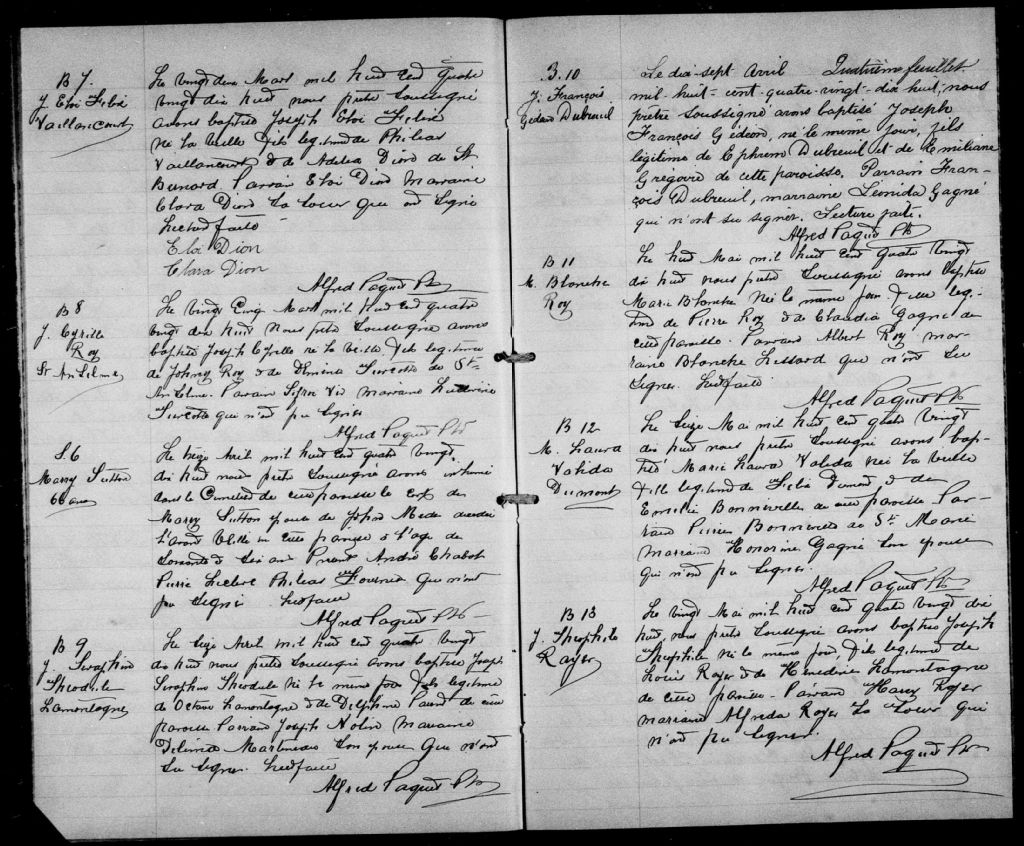 B 7.
J. Eloi Félix
Vaillancourt
Le vingt deux Mars mil huit cent quatre
vingt dix huit nous prêtre soussigné
avons baptisé Joseph Eloi Félix
né la veille fils légitime de Philéas
Vaillancourt & de Adélia Dion de St
Bernard Parrain Eloi Dion Marraine
Clara Dion sa soeur qui ont signé
Lecture faite
Eloi Dion
Clara Dion
Alfred Paquet Ptr
B 8
J. Cyrille
Roy
St Anselme
Le vingt Cinq Mars mil huit cent quatre
vingt dix huit nous prêtre soussigné avons
baptisé Joseph Cyrille né la veille fils légitime
de Johny Roy & de Turcotte de St
Anselme. Parrain marraine
Turcotte qui n'ont pu signer
Alfred Paquet Ptr
S. 6
Marry Sutton
66 ans
Le seize Avril mil huit cent quatre vingt
dix huit nous prêtre soussigné avons inhumé
dans le Cimetière de cette paroisse le corps de
Marry Sutton épouse de John décédée
l'avant veille en cette paroisse à l'age de
soixante & six ans Présents André Chabot
Pierre Leclerc Philéas Fournier qui n'ont
pu signer Lecture faite
Alfred Paquet Ptr
B 9
J. Séraphin
Théodule
Lamontagne
Le seize Avril mil huit cent quatre vingt
dix huit nous prêtre soussigné avons baptisé Joseph
Séraphin Théodule né le même jour fils légitime
de Octave Lamontagne & de Delphine Parent de cette
paroisse Parrain Joseph Nolin Marraine
Martineau son épouse qui n'ont
su signer Lecture faite
Alfred Paquet Ptr
B. 10
J. François
Gédéon Dubreuil
Le dix-sept Avril Quatrième feuillet
mil-huit-cent-quatre-vingt-dix huit, nous
prêtre soussigné avons baptisé Joseph
François Gédéon, né le même jour, fils
légitime de Ephrem Dubreuil et de Emiliane
Gregoire de cette paroisse. Parrain Fran-
çois Dubreuil, marraine Léonida Gagné
qui n'ont su signer. Lecture faite.
Alfred Paquet Ptr
B 11
M. Blanche
Roy
Le huit Mai mil huit cent quatre vingt
dix huit nous prêtre soussigné avons baptisé
Marie Blanche née le même jour fille légi-
time de Pierre Roy & de Claudia Gagné de
cette paroisse. Parrain Albert Roy mar-
raine Blanche Lessard qui n'ont su
signer. Lecture faite
Alfred Paquet Ptr
B 12
M. Laura
Valida
Dumont
Le seize Mai mil huit cent quatre vingt
dix huit nous prêtre soussigné avons bap-
tisé Marie Laura Valida née la veille
fille légitime de Félix Dumont & de
Emélie Bonneville de cette paroisse Par-
rain Pierre Bonneville de St. Marie
marraine Honorine Gagné son épouse
qui n'ont pu signer.
Alfred Paquet Ptr
B 13
J. Théophile
Royer
Le vingt Mai mil huit cent quatre vingt dix
huit, nous prêtre soussigné avons baptisé Joseph
Théophile né le même jour, fils légitime de
Louis Royer & de Lamontagne
de cette paroisse Parrain Royer
marraine Alfreda Royer sa soeur qui
n'ont pu signer.
Alfred Paquet Ptr